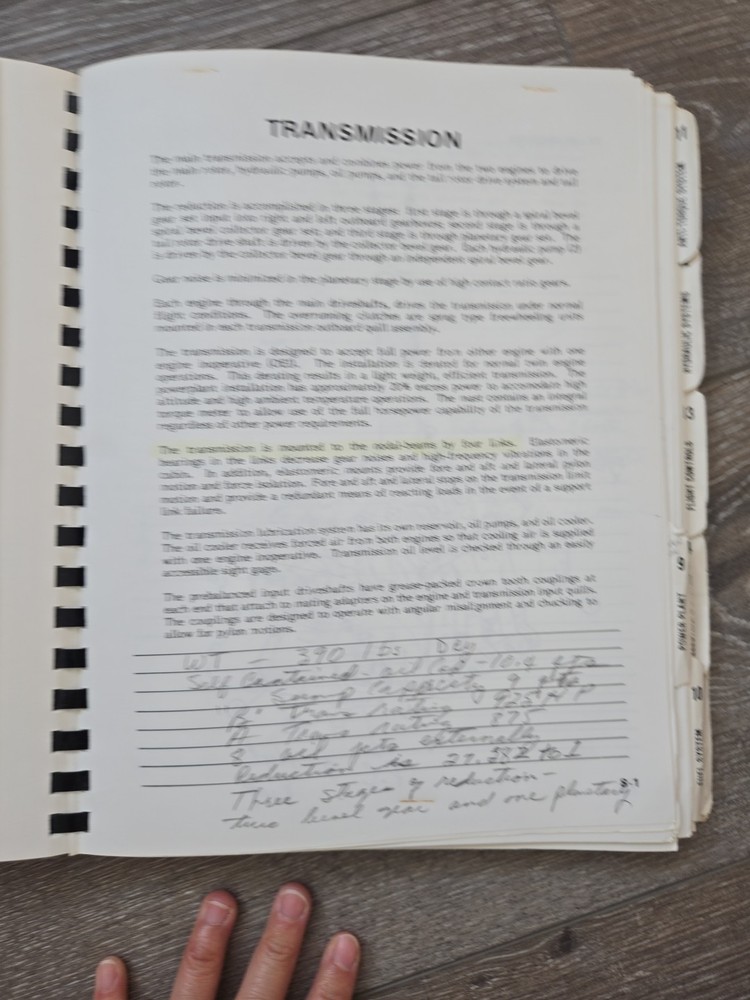 TRANSMISSION
The main transmission accepts and combines power from the two engines to drive
the main rotor, hydraulic pumps, oil pumps, and the tail rotor drive system and tail
rotor.
The reduction is accomplished in three stages: first stage is through a spiral bevel
gear set input into right and left outboard gearboxes; second stage is through a
spiral bevel collector gear set; and third stage is through planetary gear sets. The
tail rotor drive shaft is driven by the collector bevel gear. Each hydraulic pump (2)
is driven by the collector bevel gear through an independent spiral bevel gear.
Gear noise is minimized in the planetary stage by use of high contact ratio gears.
Each engine through the main driveshafts, drives the transmission under normal
flight conditions. The overrunning clutches are sprag type freewheeling units
mounted in each transmission outboard quill assembly.
The transmission is designed to accept full power from either engine with one
engine inoperative (OEI). The installation is derated for normal twin engine
operations. This derating results in a light weight, efficient transmission. The
powerplant installation has approximately 20% excess power to accommodate high
altitude and high ambient temperature operations. The mast contains an integral
torque meter to allow use of the full horsepower capability of the transmission
regardless of other power requirements.
The transmission is mounted to the nodal-beams by four links. Elastomeric
bearings in the links decrease gear noises and high-frequency vibrations in the
cabin. In addition, elastomeric mounts provide fore and aft and lateral pylon
motion and force isolation. Fore and aft and lateral stops on the transmission limit
motion and provide a redundant means of reacting loads in the event of a support
link failure.
The transmission lubrication system has its own reservoir, oil pumps, and oil cooler.
The oil cooler receives forced air from both engines so that cooling air is supplied
with one engine inoperative. Transmission oil level is checked through an easily
accessible sight gage.
The prebalanced input driveshafts have grease-packed crown tooth couplings at
each end that attach to mating adapters on the engine and transmission input quills.
The couplings are designed to operate with angular misalignment and chucking to
allow for pylon motions.
WT - 390 lbs Dry
Self Contained - oil Cap - 10.4 qts
Sump Capacity 9 qts
"B" trans rating 925 HP
A Trans rating 875
8 oil jets externally
Reduction is 27.532 to 1
Three stages of reduction -
two bevel gear and one planetary
8-1
ANTI-TORQUE SYSTEM
HYDRAULIC SYSTEMS
FLIGHT CONTROLS
9
POWER PLANT
10
FUEL SYSTEM